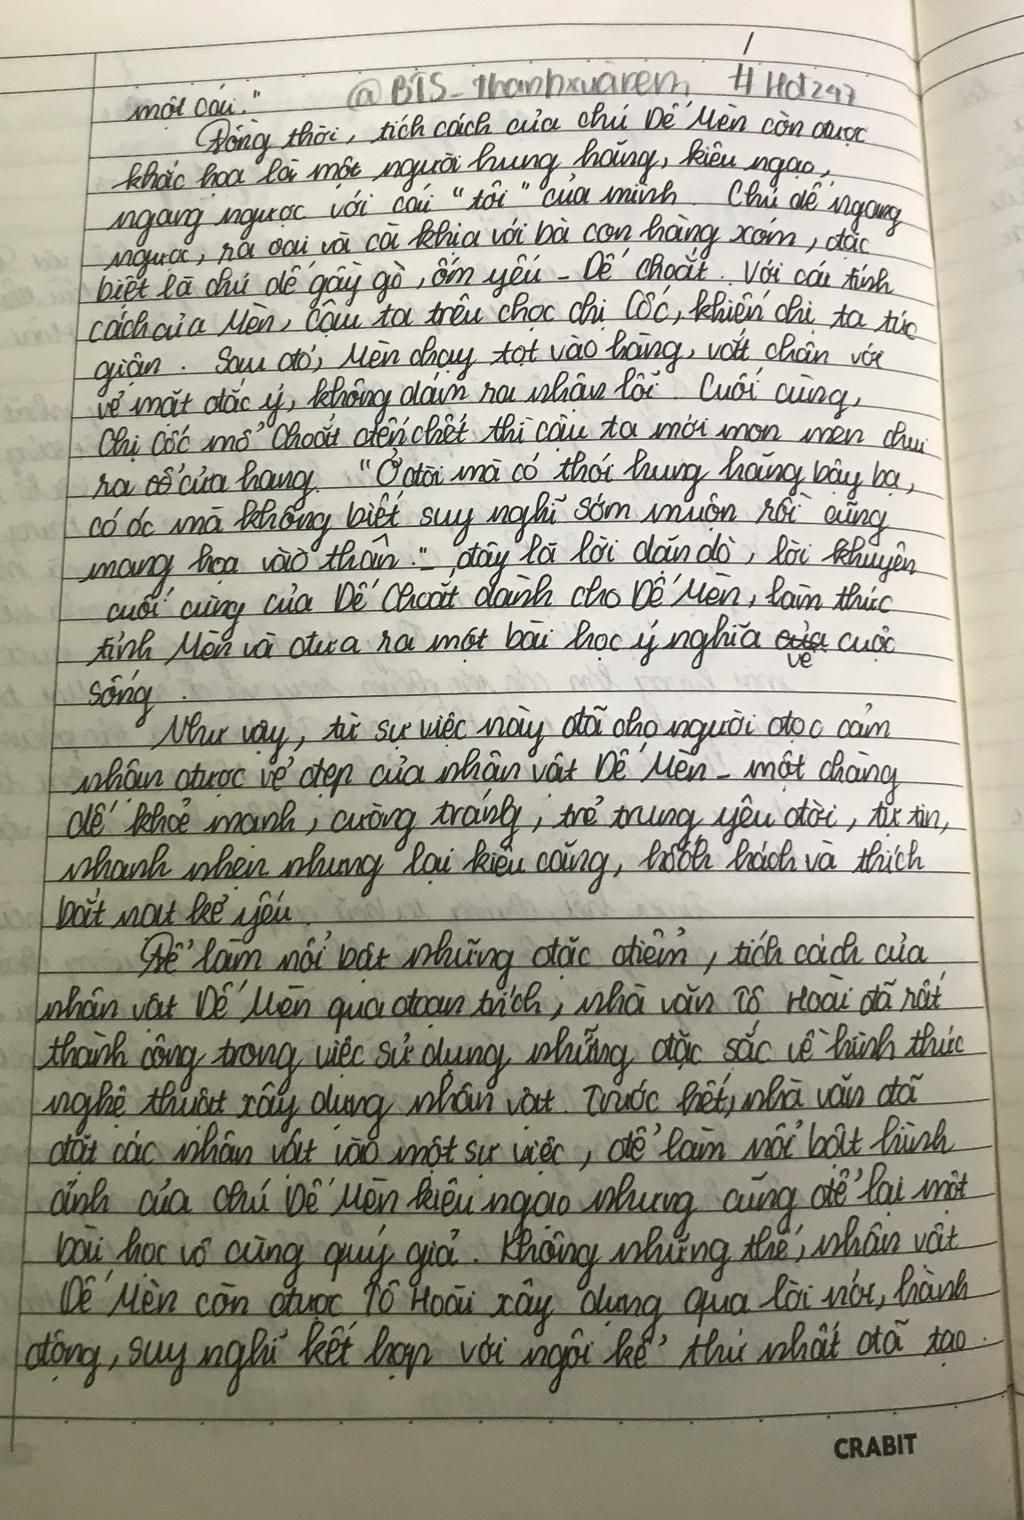 @BTS_thanhxuarem #Hd247
một cái."
Đồng thời, tích cách của chú Dế Mèn còn được
khác họa là một người hung hăng, kiêu ngạo,
ngang ngược với cái "tôi" của mình. Chú dế ngang
ngược, ra oai và cà khịa với bà con hàng xóm, đặc
biệt là chú dế gầy gò, ốm yếu - Dế Choắt. Với cái tính
cách của Mèn, cậu ta trêu chọc chị Cốc, khiến chị ta tức
giận. Sau đó, Mèn chạy tọt vào hàng, vắt chân với
vẻ mặt đắc ý, không dám ra nhận lỗi. Cuối cùng,
Chị Cốc mổ Choắt đến chết thì cậu ta mới mon men chui
ra cửa hang. "Ở đời mà có thói hung hăng bậy bạ,
có óc mà không biết suy nghĩ sớm muộn rồi cũng
mang họa vào thân." - đây là lời dăn dò, lời khuyên
cuối cùng của Dế Choắt dành cho Dế Mèn, làm thức
tỉnh Mèn và đưa ra một bài học ý nghĩa về cuộc
sống.
Như vậy, từ sự việc này đã cho người đọc cảm
nhận được vẻ đẹp của nhân vật Dế Mèn - một chàng
dế khoẻ mạnh, cường tráng, trẻ trung yêu đời, tự tin,
nhanh nhẹn nhưng lại kiêu căng, hách và thích
bắt nạt kẻ yếu.
Để làm nổi bật những đặc điểm, tích cách của
nhân vật Dế Mèn qua đoạn trích, nhà văn Tô Hoài đã rất
thành công trong việc sử dụng những đặc sắc về hình thức
nghệ thuật xây dựng nhân vật. Trước hết, nhà văn đã
đặt các nhân vật vào một sự việc, để làm nổi bật hình
ảnh của chú Dế Mèn kiêu ngạo nhưng cũng để lại một
bài học vô cùng quý giá. Không những thế, nhân vật
Dế Mèn còn được Tô Hoài xây dựng qua lời nói, hành
động, suy nghĩ kết hợp với ngôi kể thứ nhất đã tạo
CRABIT